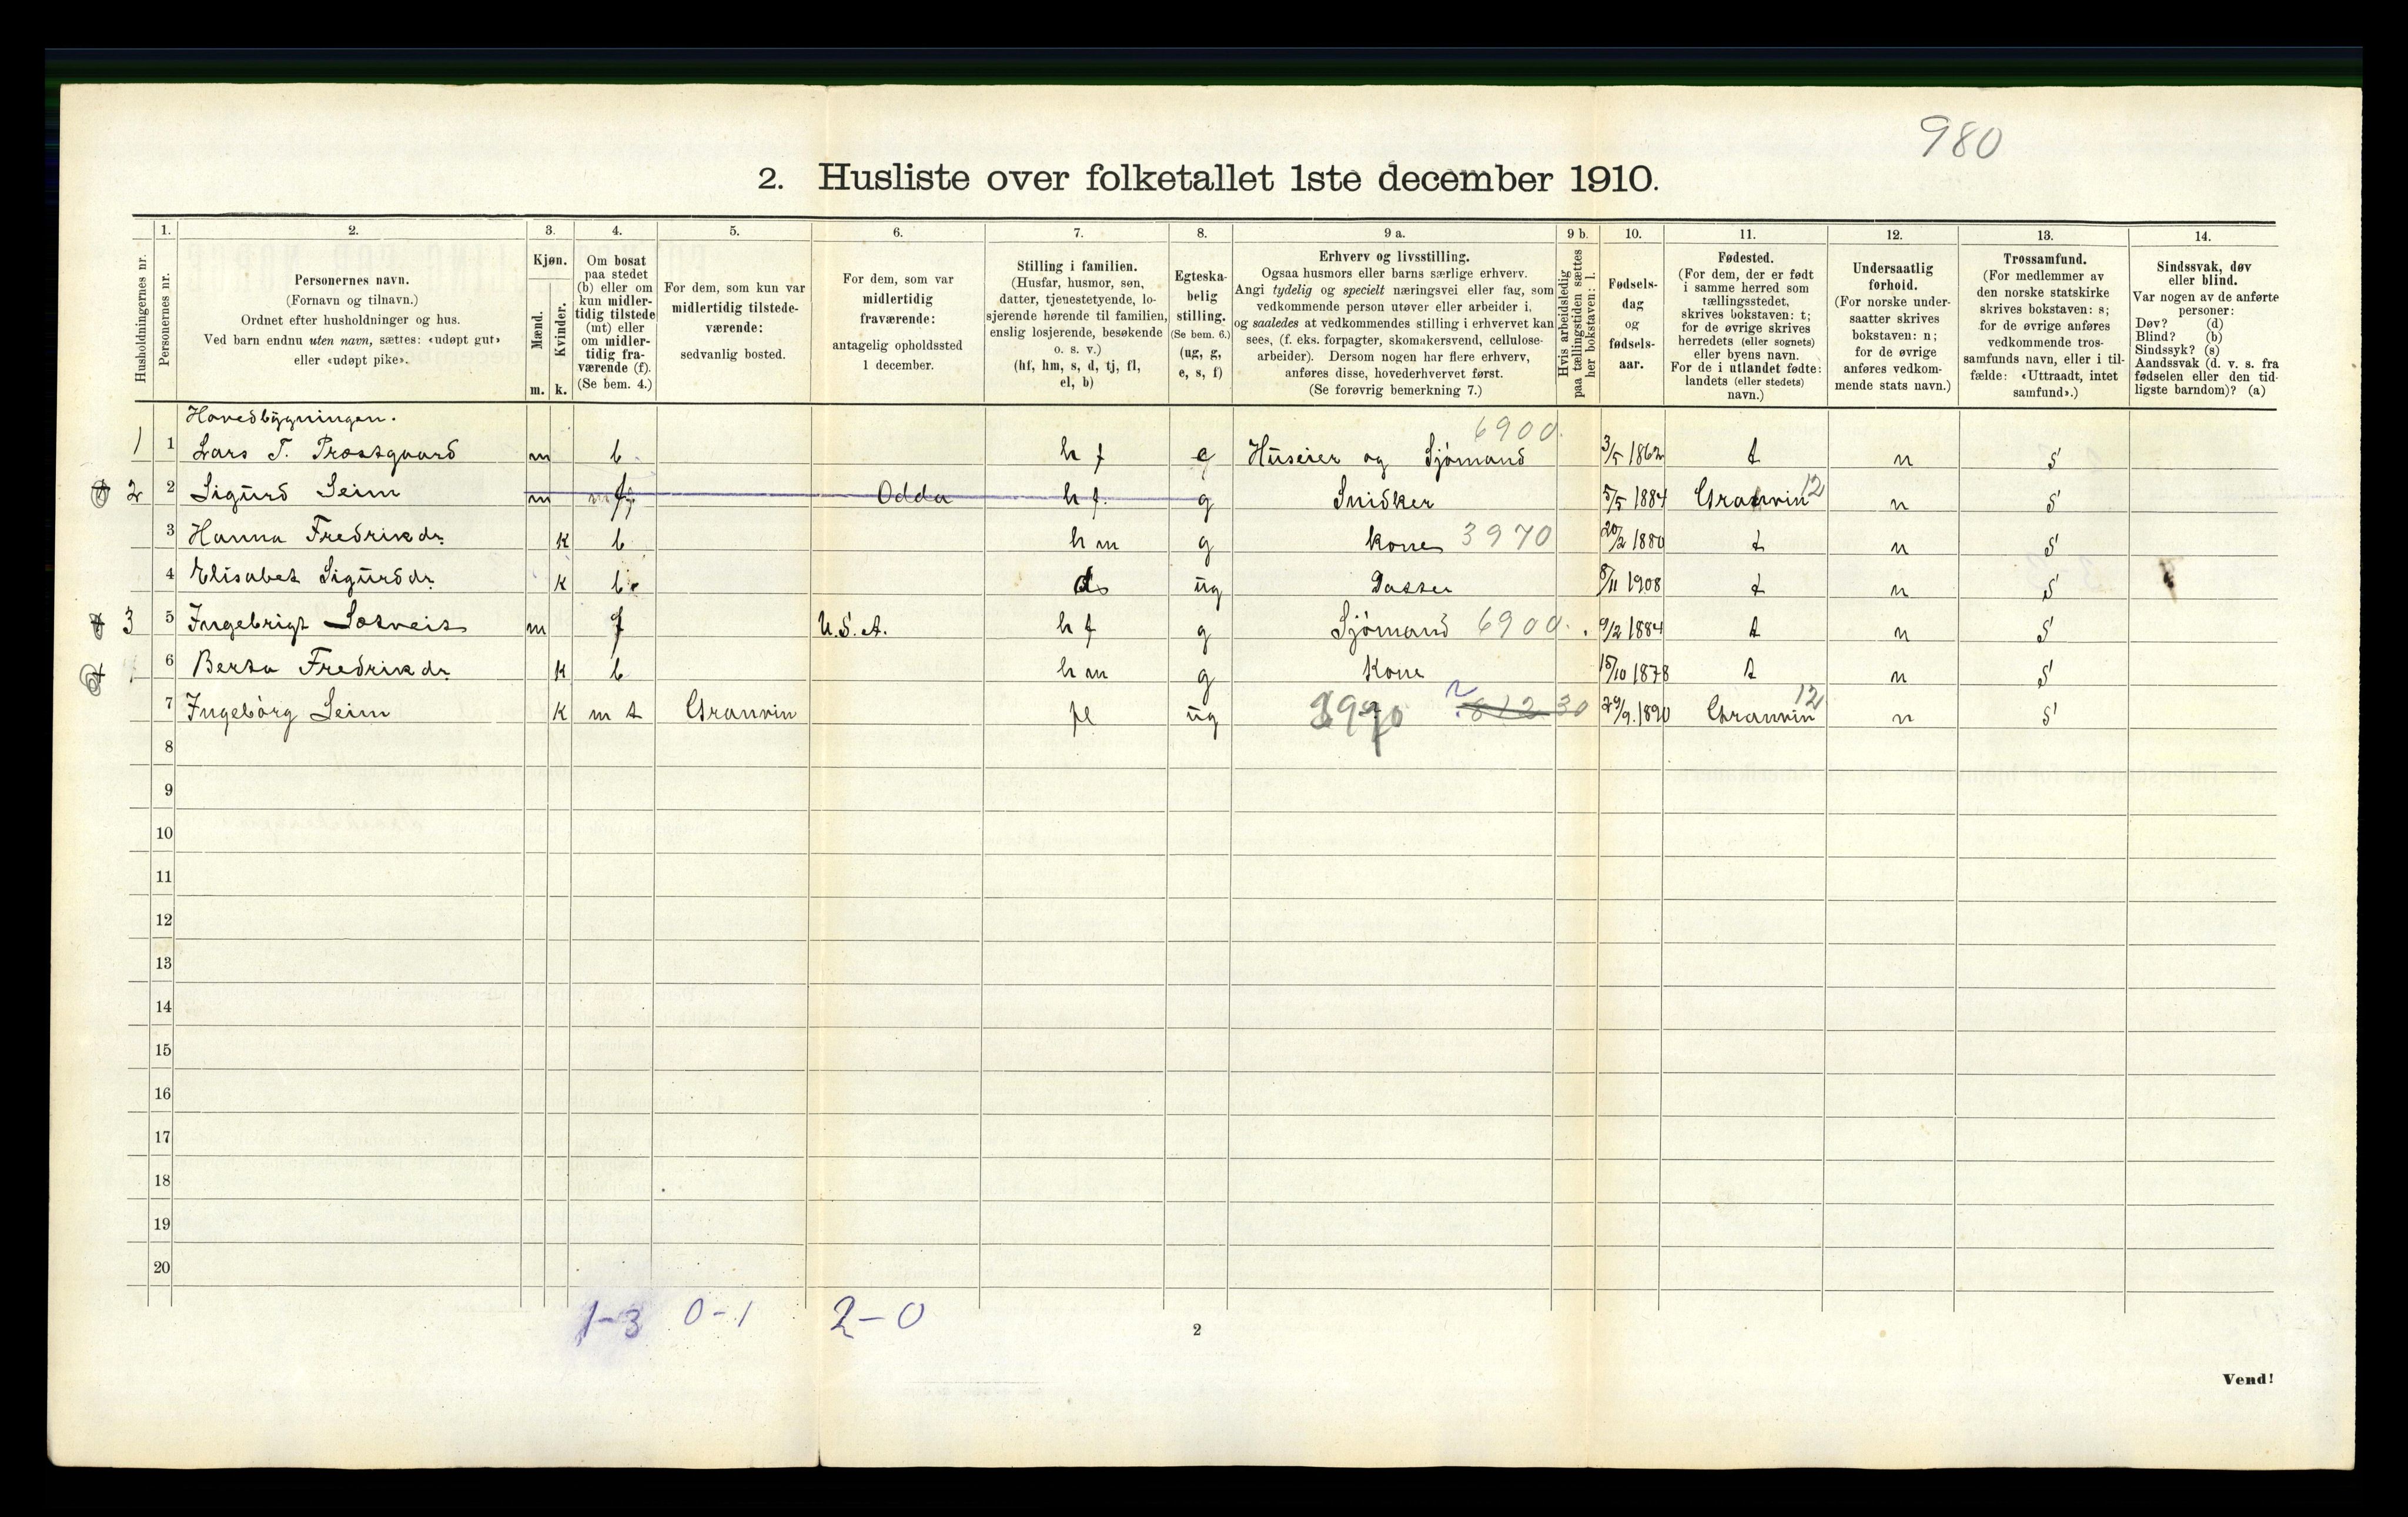 980
2. Husliste over folketallet 1ste december 1910.
Husholdningernes nr.
1.
Personernes nr.
2.
Personernes navn.
(Fornavn og tilnavn.)
Ordnet efter husholdninger og hus.
Ved barn endnu uten navn, sættes: «udøpt gut»
eller «udøpt pike».
3.
Kjøn.
Mænd.
Kvinder.
m. k.
4.
Om bosat
paa stedet
(b) eller om
kun midler-
tidig tilstede
(mt) eller
om midler-
tidig fra-
værende (f).
(Se bem. 4.)
5.
For dem, som kun var
midlertidig tilstede-
værende:
sedvanlig bosted.
6.
For dem, som var
midlertidig
fraværende:
antagelig opholdssted
1 december.
7.
Stilling i familien.
(Husfar, husmor, søn,
datter, tjenestetyende, lo-
sjerende hørende til familien,
enslig losjerende, besøkende
o. s. v.)
(hf, hm, s, d, tj, fl,
el, b)
8.
Egteska-
belig
stilling.
(Se bem. 6.)
(ug, g,
e, s, f)
9 a.
Erhverv og livsstilling.
Ogsaa husmors eller barns særlige erhverv.
Angi tydelig og specielt næringsvei eller fag, som
vedkommende person utøver eller arbeider i,
og saaledes at vedkommendes stilling i erhvervet kan
sees, (f. eks. forpagter, skomakersvend, cellulose-
arbeider). Dersom nogen har flere erhverv,
anføres disse, hovederhvervet først.
(Se forøvrig bemerkning 7.)
9 b.
Hvis arbeidsledig
paa tællingstiden sættes
her bokstaven: l.
10.
Fødsels-
dag
og
fødsels-
aar.
11.
Fødested.
(For dem, der er født
i samme herred som
tællingsstedet,
skrives bokstaven: t;
for de øvrige skrives
herredets (eller sognets)
eller byens navn.
For de i utlandet fødte:
landets (eller stedets)
navn.)
12.
Undersaatlig
forhold.
(For norske under-
saatter skrives
bokstaven: n;
for de øvrige
anføres vedkom-
mende stats navn.)
13.
Trossamfund.
(For medlemmer av
den norske statskirke
skrives bokstaven: s;
for de øvrige anføres
vedkommende tros-
samfunds navn, eller i til-
fælde: «Uttraadt, intet
samfund».)
14.
Sindssvak, døv
eller blind.
Var nogen av de anførte
personer:
Døv? (d)
Blind? (b)
Sindssyk? (s)
Aandssvak (d. v. s. fra
fødselen eller den tid-
ligste barndom)? (a)
Hovedbygningen.
1 1 Lars T. Præstgaard m b h f e Huseier og Sjómand 6900. 3/5 1862 t n S
2 2 Sigurd Seim m f Odda h f. g Snidker 5/5 1884 Granvin 12 n S
3 Hanna Fredrikdr. k b h m g kone 3970 20/2 1880 t n S
4 Elisabet Sigurddr. k b. d ug Datter 8/11 1908 t n S
3 5 Ingebrigt Sotveit m f U.S.A. h f g Sjómand 6900. 9/2 1884 t n S
6 Berta Fredrikdr. k b h m g Kone 15/10 1878 t n S
7 Ingebórg Seim k m t Granvin fl ug 29/9.1890 Granvin 12 n S
8
9
10
11
12
13
14
15
16
17
18
19
20
1-3 0-1 2-0
2
Vend!